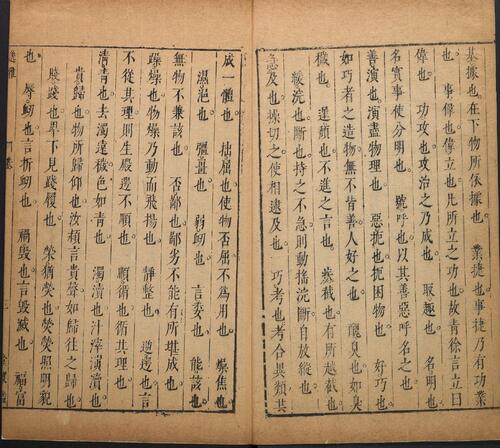 基據也在下物所依據也　業捷也事捷乃有功業
也　事偉也偉立也凡所立之功也故青徐言立曰
偉也　功攻也攻治之乃成也　取趣也　名明也
名實事使分明也　號呼也以其善惡呼名之也
善演也演盡物理也　惡扼也扼困物也　好巧也
如巧者之造物無不皆善人好之也　醜臭也如臭
穢也　遲頹也不進之言也　疾截也有所越截也
緩浣也斷也持之不急則動搖浣斷自放縱也
急及也操切之使相逮及也　巧考也考合異類共
成一體也　拙屈也使物否屈不為用也　燥焦也
濕浥也　彊畺也　弱衂也　言委也　能該也
無物不兼該也　否鄙也鄙劣不能有所堪成也
躁燥也物燥乃動而飛揚也　靜整也　逆遻也言
不從其理則生殿遻不順也　順循也循其理也
清青也去濁遠穢色如青也　濁瀆也汁滓演瀆也
貴歸也物所歸仰也汝潁言貴聲如歸往之歸也
賤踐也卑下見踐履也　榮猶熒也熒熒照明貌
也　辱衂也言折衂也　禍毀也言毀滅也　福富
逸雅